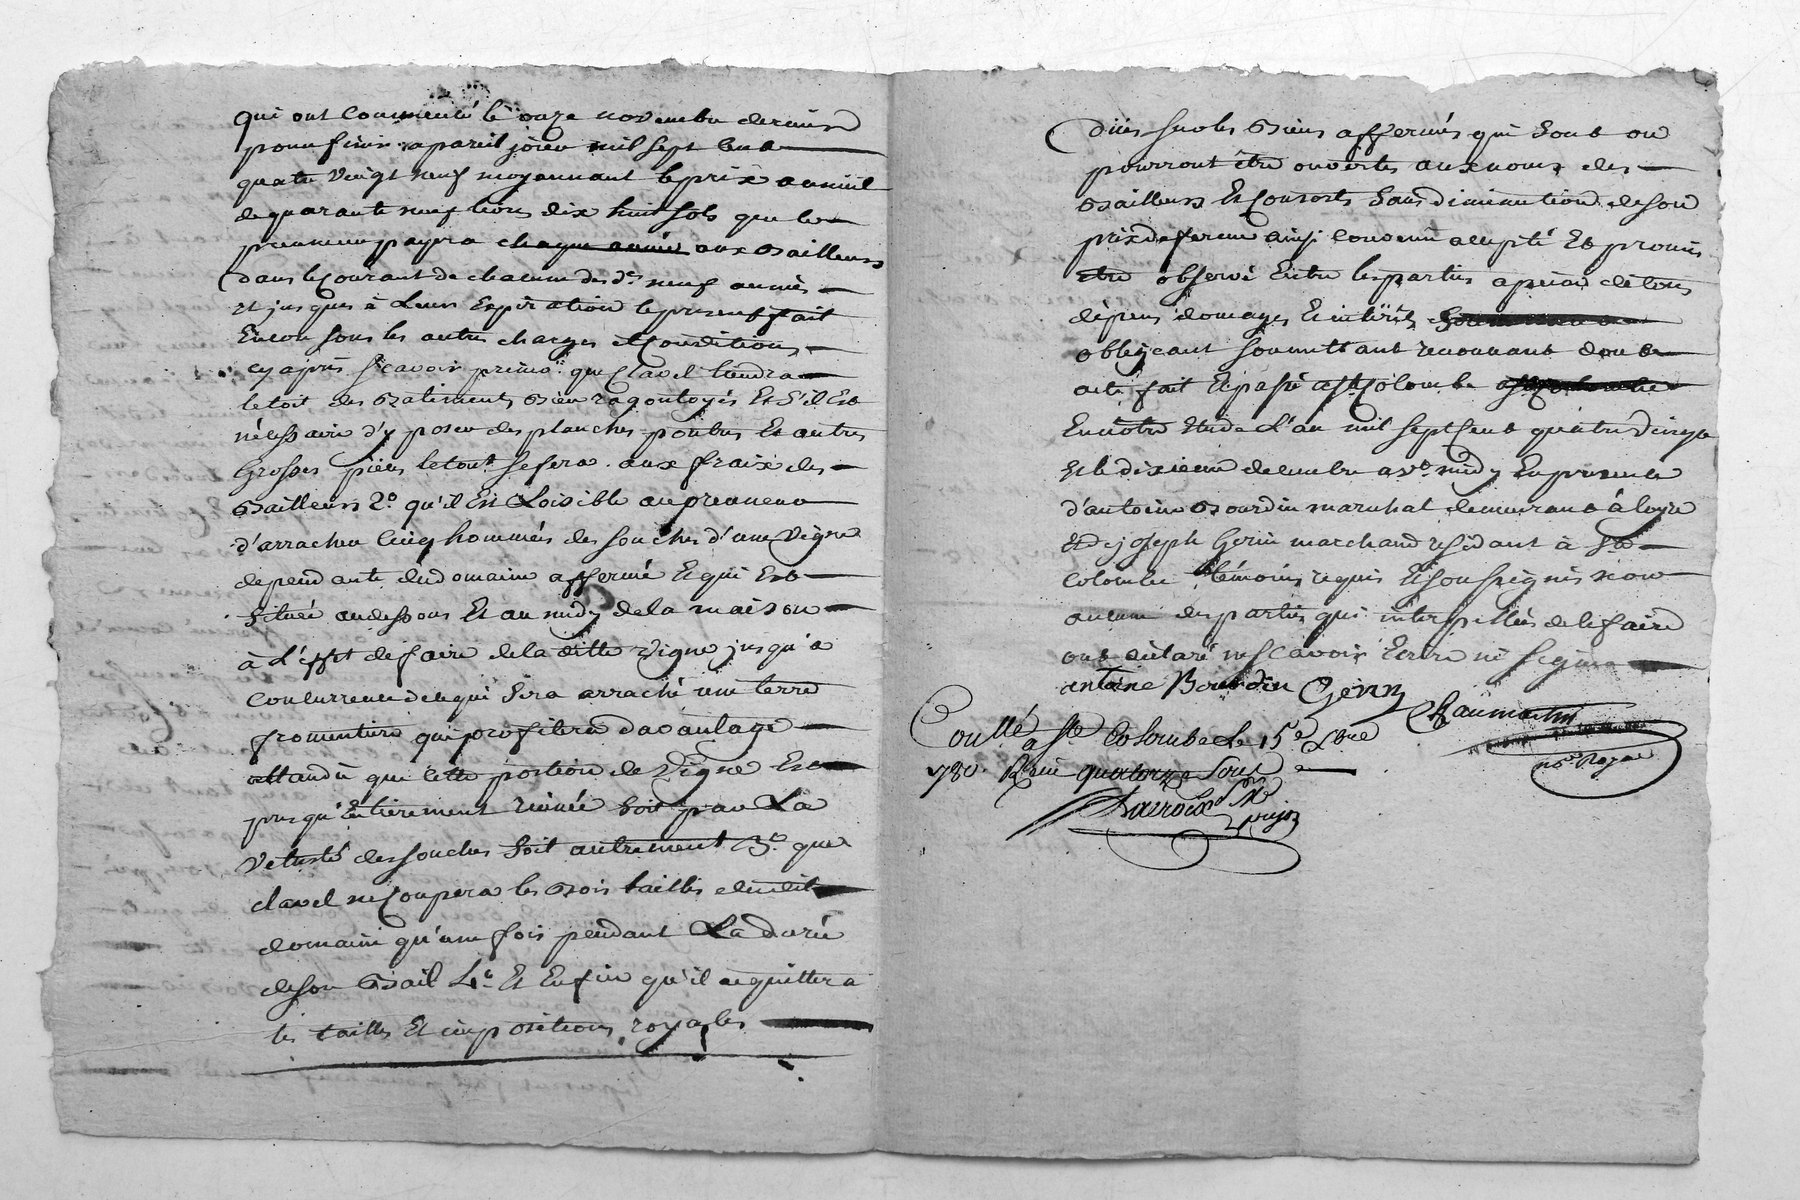 qui ont commencé le onze novembre dernier
pour finir a pareil jour mil sept cent
quatre vingt neuf moyennant le prix annuel
de quarante neuf livres dix huit sols que le
preneur payera chaque année aux Bailleurs
dans le courant de chacune des d.es neuf années
et jusques à Leur Expiration le present fait
Encor sous les autres charges et Conditions
cy après sçavoir primò que Clavel tiendra
le toit des Batiments bien ragouloyés Et s'il Est
nécessaire d'y poser des planches poutres Et autres
Grosses pièces le tout se fera aux fraix des
Bailleurs 2.o qu'il Est Loisible au preneur
d'arracher cinq hommées de souches d'une vigne
dependante du domaine affermé Et qui Est
Située au dessous Et au midy de la maison
à L'effet de faire de la ditte vigne jusqu'a
concurrence de ce qui sera arraché une terre
fromentiere qui profitera davantage
attandû que cette portion de vigne Est
presqu'Entierement ruinée soit par La
vetusté des souches soit autrement 3.o que
clavel ne Coupera les Bois taillis dudit
domaine qu'une fois pendant La durée
de son Bail 4.o Et Enfin qu'il acquittera
les tailles Et impositions royales
duës sur les Biens affermés qui sont ou
pourront être ouvertes aux noms des
Bailleurs Et Consorts sans diminution de son
prix de ferme ainsi convenû accepté Et promis
être observé Entre les parties a peine de tous
dépens domages Et intérêts
obligeant soumettant renonçant dont
acte fait Et passé a Ste Colombe
En nôtre étude L'an mil sept Cent quatre vingt
Et le dixieme decembre av.t midy En presence
d'antoine Bourdin marechal demeurant à loyre
Et de joseph Gerin marchand résidant à Ste
Colombe témoins requis Et soussignés non
aucune des parties qui interpellées de le faire
ont déclaré ne sçavoir Ecrire ni signer
antoine Bourdin Gerin Chaumartin
no.re Royal
Conllé a Ste Colombe Le 15e Xbre
1780. Reçu quatorze sous
Lacroix